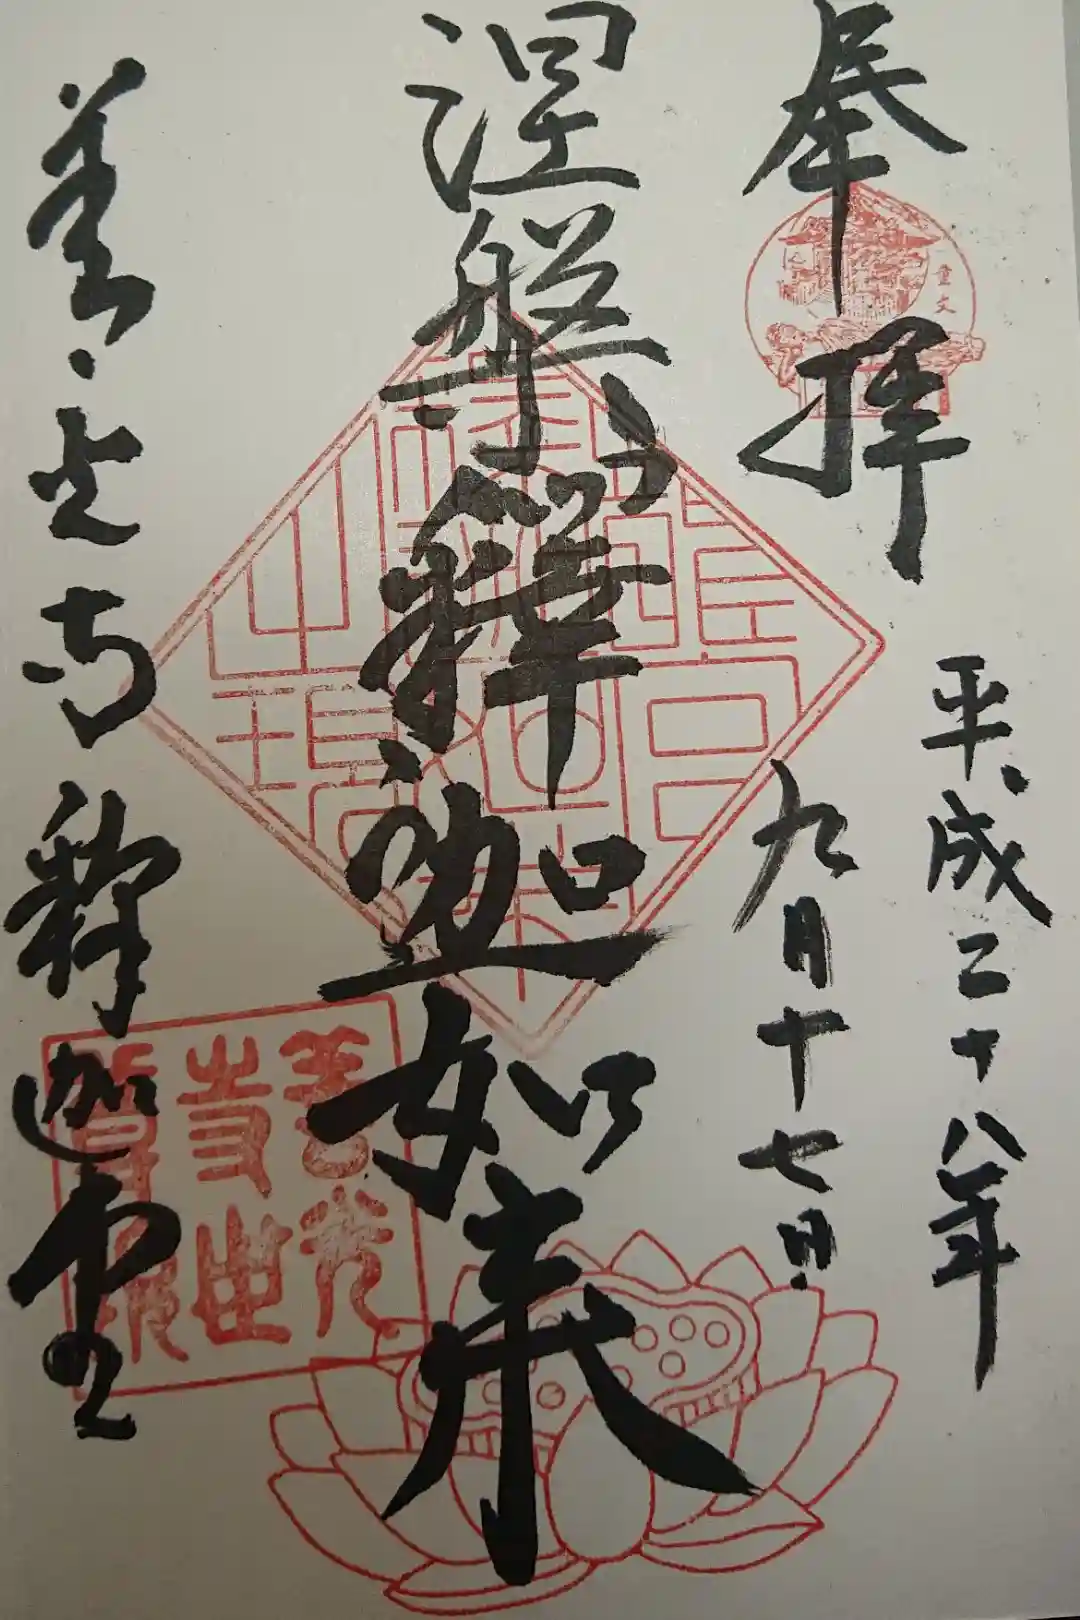 奉拝
重文
平成二十八年
九月十七日
涅槃釋迦如来
善光寺釋迦堂
善光
寺世
尊院